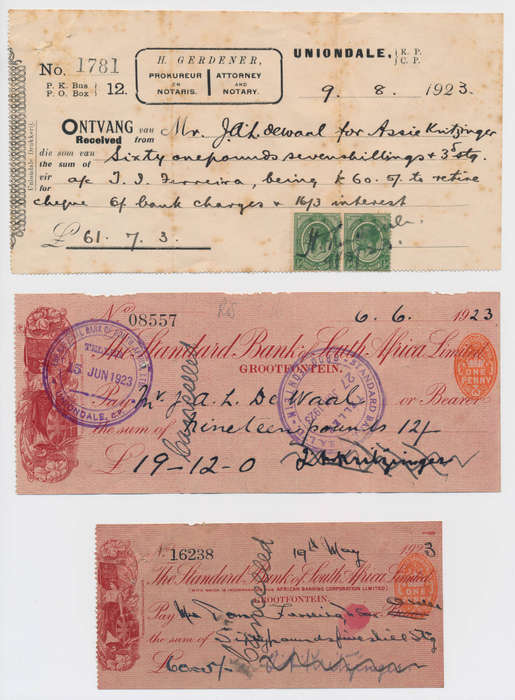 No. 1781
P. K. Bus
P. O. Box 12.
H. GERDENER,
PROKUREUR EN NOTARIS.
ATTORNEY AND NOTARY.
UNIONDALE, K. P.
C. P.
9. 8. 1923.
Uniondale Drukkerij.
ONTVANG van Mr. J.A.L. deWaal for Assie Kritzinger
Received from
die som van Sixty one pounds seven shillings & 3d stg.
the sum of
vir a/c I. I. Ferreira, being £60. 5/- to retire
for
cheque 6/- bank charges & 16/3 interest
£ 61. 7. 3.
No. 08557
6. 6. 1923
The Standard Bank of South Africa Limited
GROOTFONTEIN.
ONE PENNY
Pay Mr J. A. L. De Waal or Bearer
the sum of Nineteen pounds 12/-
£ 19-12-0
Cancelled
15 JUN 1923
UNIONDALE, C.P.
STANDARD BANK
No. 16238
19th May 1923
The Standard Bank of South Africa Limited
(WITH WHICH IS INCORPORATED AFRICAN BANKING CORPORATION LIMITED)
GROOTFONTEIN.
ONE
Pay Ferreira or Order
the sum of Sixty pounds five shill Stg
£60.5/-
Cancelled